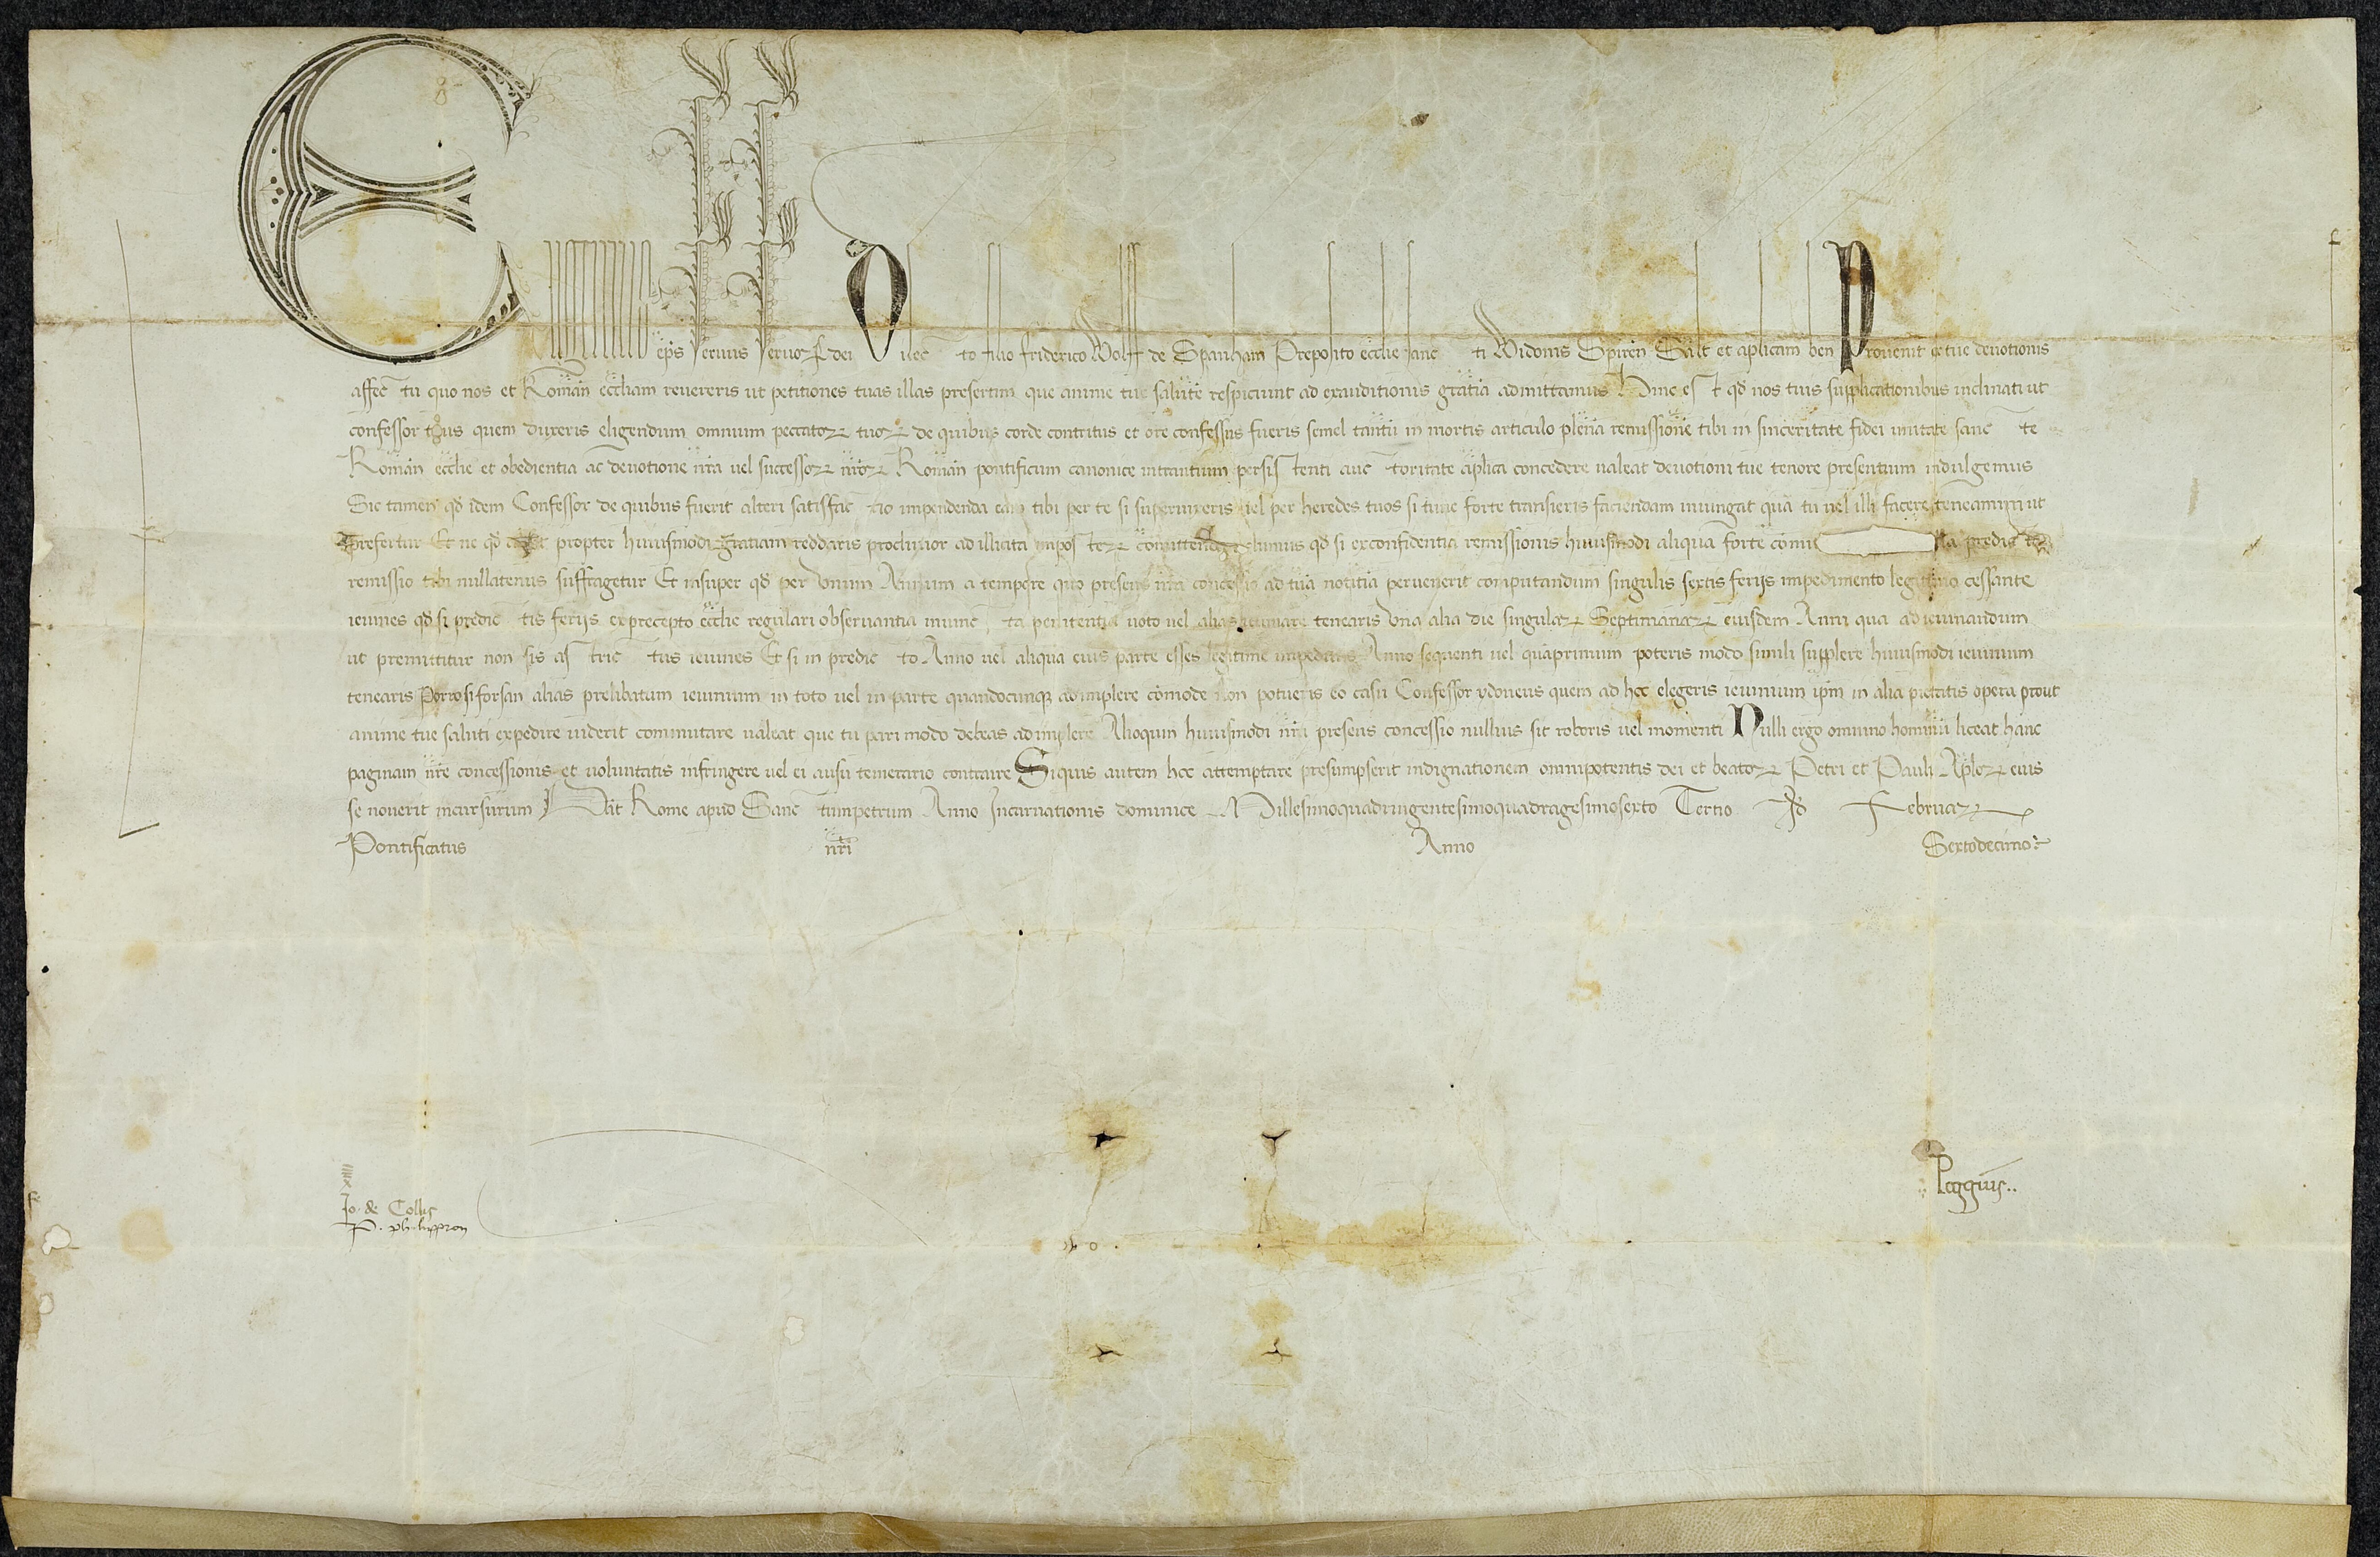 Eugenius ep̄s seruus seruoꝝ dei Dilecto filio friderico Wolff de Spanham Preposito ecclie sancti Widonis Spireñ Salt̄ et aplicam ben̄ Prouenit ex tue deuotionis
affectu quo nos et Romañ eccliam reuereris ut petitiones tuas illas presertim que anime tue salutē respiciunt ad exauditionis gratiā admittamus Hinc est qd̄ nos tuis supplicationibus inclinati ut
confessor tuus quem duxeris eligendum omnium peccatoꝝ tuoꝝ de quibus corde contritus et ore confessus fueris semel tantū in mortis articulo plenā remissionē tibi in sinceritate fidei unitate sancte
Romañ ecclie et obedientia ac deuotione nr̄a uel successoꝝ nr̄oꝝ Romañ pontificum canonice intrantium persistenti auctoritate aplica concedere ualeat deuotioni tue tenore presentium indulgemus
Sic tamen qd̄ idem Confessor de quibus fuerit alteri satisfactio impendenda eam tibi per te si superuixeris uel per heredes tuos si tunc forte transieris faciendam iniungat quā tu uel illi facere teneamini ut
prefertur Et ne qd̄ absit propter huiusmodi gratiam reddaris procliuior ad illicita imposteꝝ committenda uolumus qd̄ si ex confidentia remissionis huiusmodi aliqua forte cōmi lla predicta
remissio tibi nullatenus suffragetur Et insuper qd̄ per Vnum Annum a tempore quo presens nr̄a concessio ad tuā notitiā peruenerit computandum singulis sextis ferijs impedimento legitimo cessante
ieiunes qd̄ si predictis ferijs ex precepto ecclie regulari obseruantia iniuncta penitentia uoto uel alias ieiunare tenearis Vna alia die singulaꝝ Septimanaꝝ eiusdem Anni qua ad ieiunandum
ut premittitur non sis astrictus ieiunes Et si in predicto Anno uel aliqua eius parte esses legitime impeditus Anno sequenti uel quāprimum poteris modo simili supplere huiusmodi ieiunium
tenearis Porro si forsan alias prelibatum ieiunium in toto uel in parte quandocunqꝫ adimplere cōmode non potueris eo casu Confessor ydoneus quem ad hec elegeris ieiunium ip̄m in alia pietatis opera prout
anime tue saluti expedire uiderit commutare ualeat que tu pari modo debeas adimplere Alioquin huiusmodi nr̄a presens concessio nullius sit roboris uel momenti Nulli ergo omnino hominū liceat hanc
paginam nr̄e concessionis et uoluntatis infringere uel ei ausu temerario contraire Siquis autem hec attemptare presumpserit indignationem omnipotentis dei et beatoꝝ Petri et Pauli Aploꝝ eius
se nouerit incursurum Dat̄ Rome apud Sanctumpetrum Anno Incarnationis dominice Millesimoquadringentesimoquadragesimosexto Tertio Id̄ Februaꝝ
Pontificatus nr̄i Anno Sextodecimo
Jo. de Collis
P. philippson
Poggius